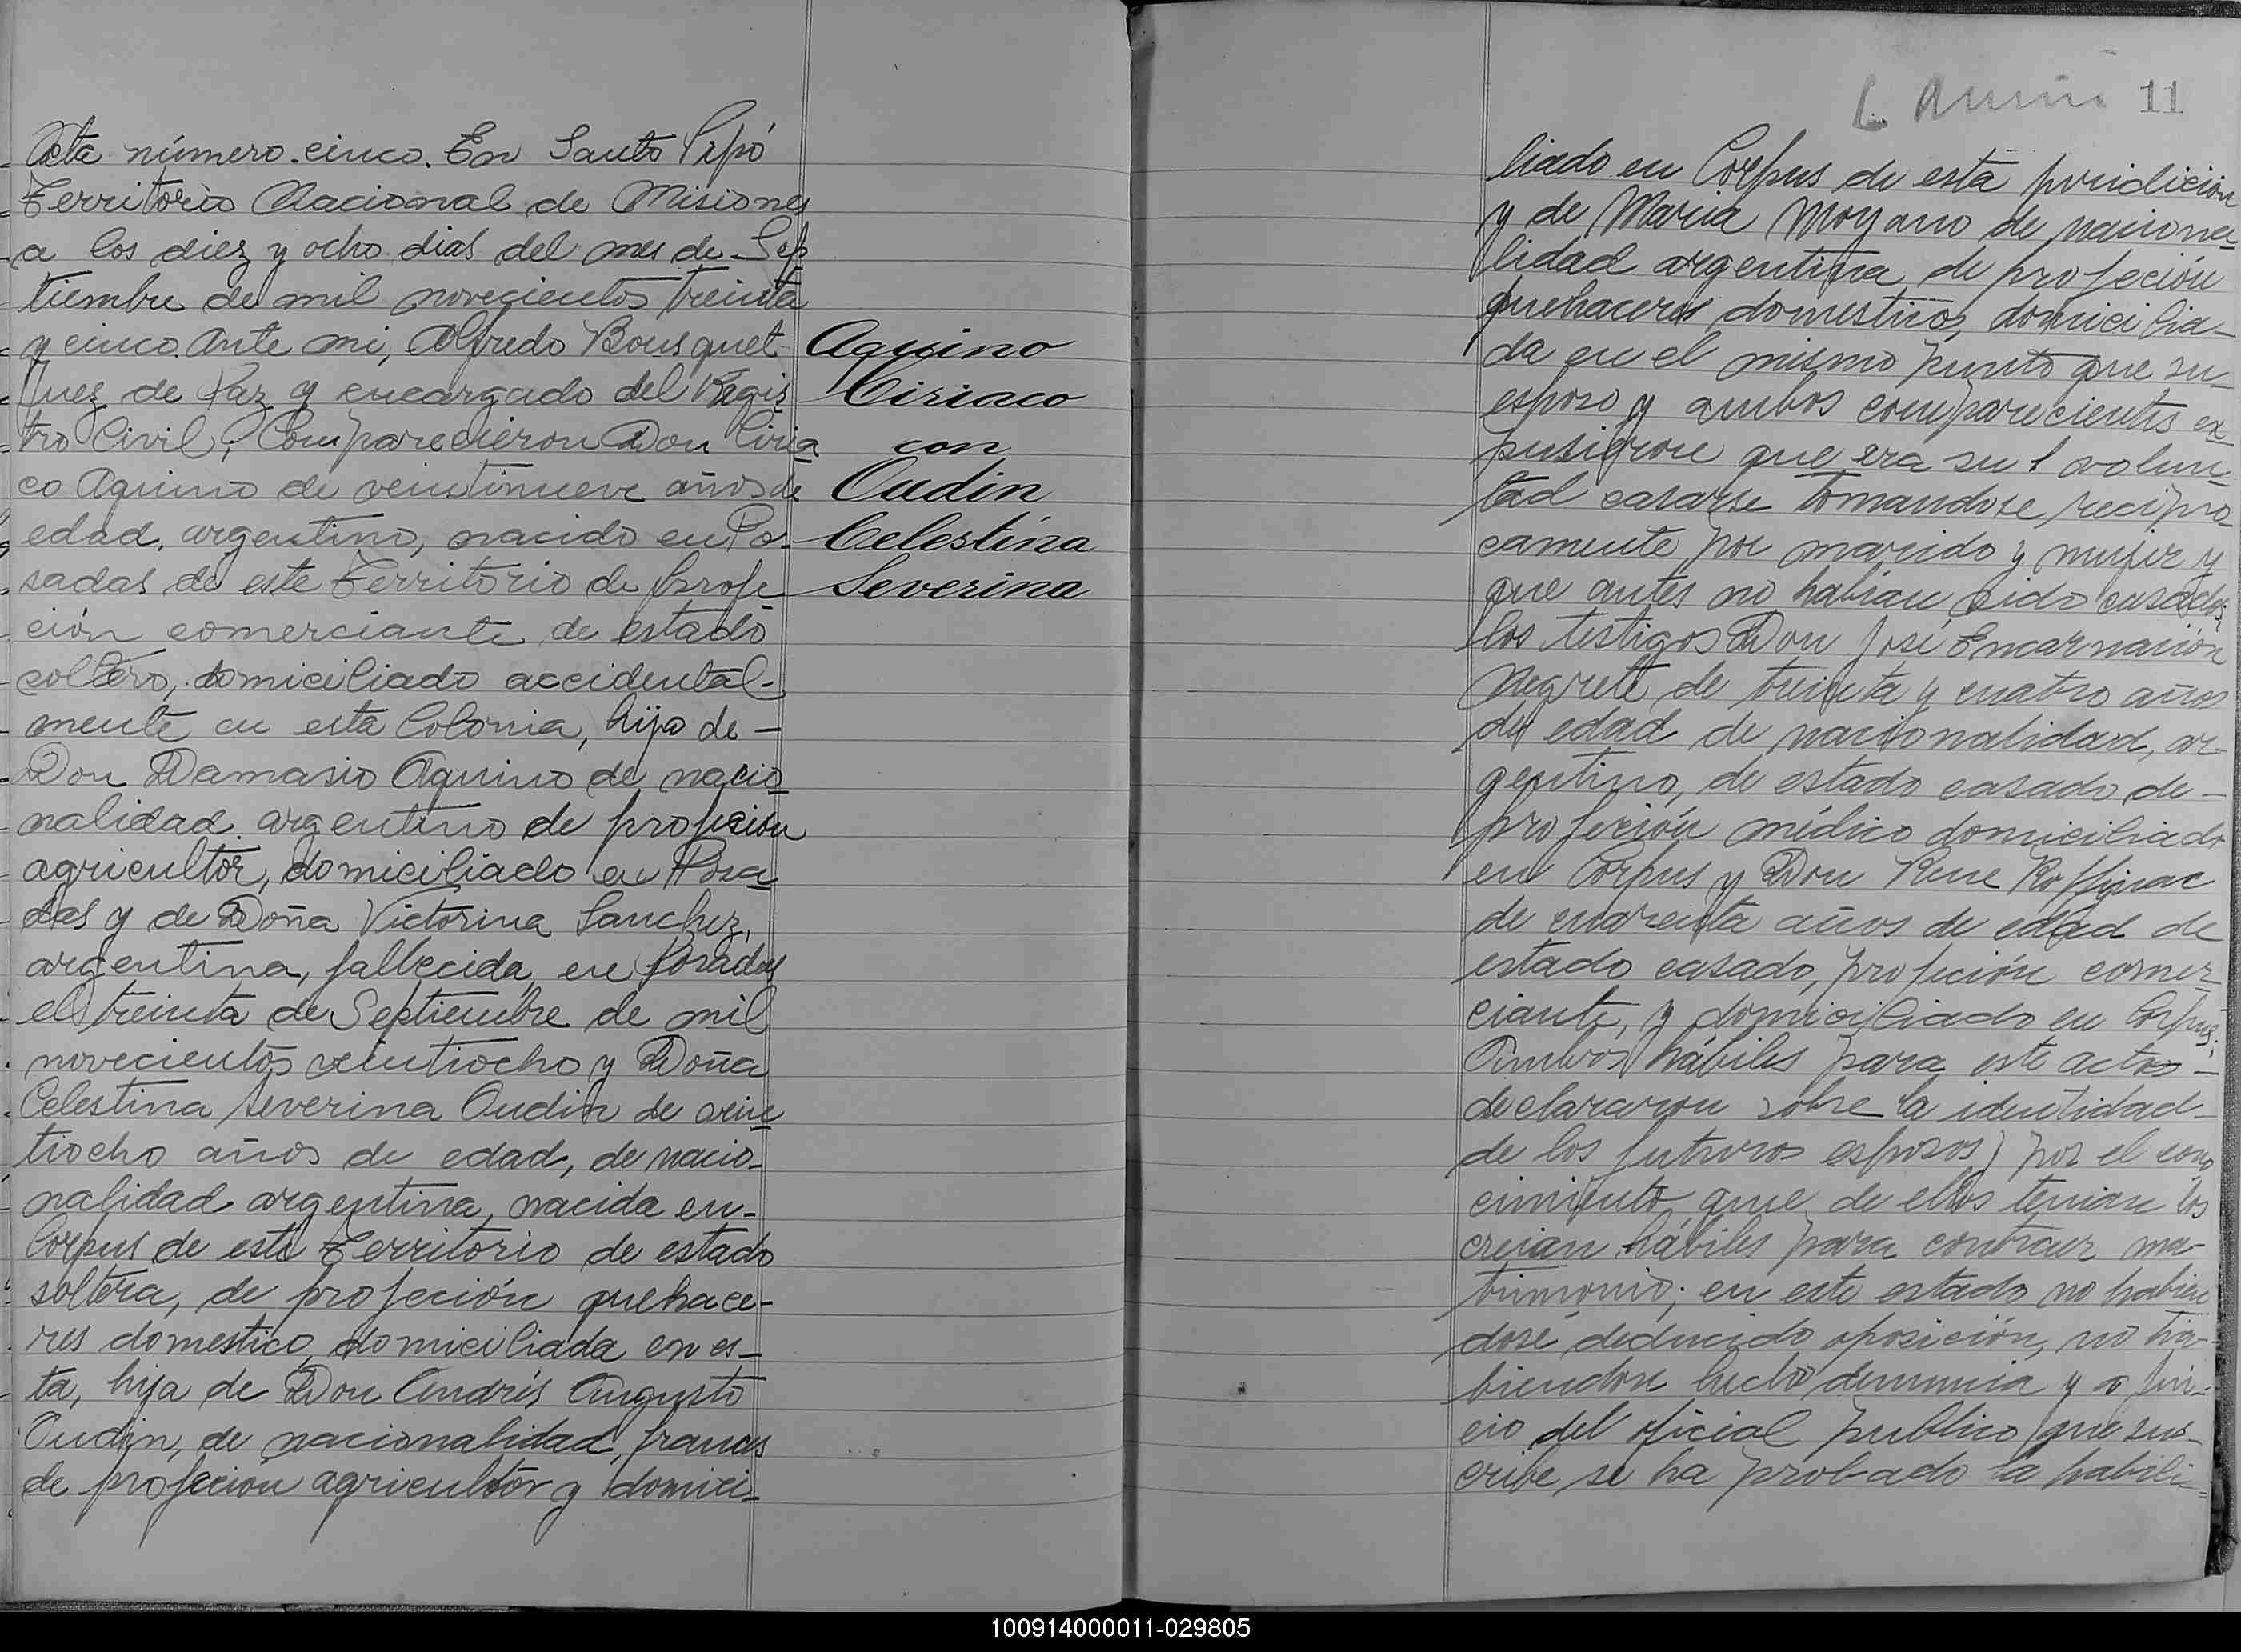 Acta número cinco. En Santo Pipó
Territorio Nacional de Misiones
a los diez y ocho dias del mes de Sep
tiembre de mil novecientos treinta
y cinco. Ante mi, Alfredo Bousquet
Juez de Paz y encargado del Regis
tro Civil; Comparecieron Don Ciria
co Aquino de veintinueve años de
edad, argentino, nacido en Po-
sadas de este Territorio de profe
ción comerciante de estado
soltero, domiciliado accidental-
mente en esta Colonia, hijo de -
Don Damasio Aquino de nacio
nalidad argentino de profeción
agricultor, domiciliado en Posa
das y de Doña Victorina Sanchez,
argentina, fallecida en Posadas
el treinta de Septiembre de mil
novecientos veintiocho y Doña
Celestina Severina Oudin de vein
tiocho años de edad, de nacio-
nalidad argentina, nacida en-
Corpus de este Territorio de estado
soltera, de profeción quehace-
res domestico, domiciliada en es-
ta, hija de Don Andrés Augusto
Oudin, de nacionalidad, frances
de profeción agricultor y domici-
Aquino
Ciriaco
con
Oudin
Celestina
Severina
11
liado en Corpus de esta juridicion
y de Maria Moyano de naciona
lidad argentina, de profeción
quehaceres domestico, domicilia-
da en el mismo punto que su-
esposo y ambos comparecientes ex
pusieron que era su volun
tad casarse tomandose recipro
camente por marido y mujer y
que antes no habian sido casados;
los testigos Don José Encarnación
Negrete de treinta y cuatro años
de edad de nacionalidad, ar-
gentino, de estado casado de-
profeción médico domiciliado
en Corpus y Don Rene Roffignac
de cuarenta años de edad de
estado casado, profeción comer
ciante, y domiciliado en Corpus;
Ambos hábiles para este acto -
declararon sobre la identidad-
de los futuros esposos) por el cono
cimiento que de ellos tenian los
creian hábiles para contraer ma-
trimonio; en este estado no habien
dose deducido oposición, no ha-
biendose hecho denuncia y a jui-
cio del oficial publico que sus-
cribe se ha probado la habili-
100914000011-029805